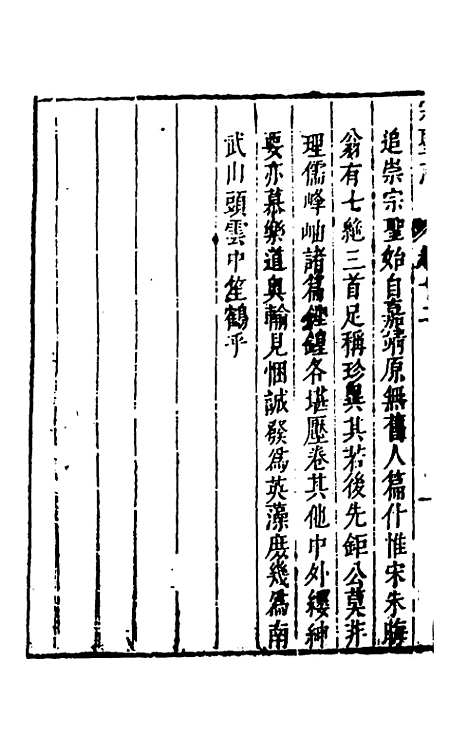 追崇宗聖始自嘉靖原無舊人篇什惟宋朱晦
翁有七絶三首足稱珍異其若後先鉅公莫非
理儒峰岫諸篇鏗鍠各堪壓卷其他中外縉紳
要亦慕樂道輿輸見悃誠發爲英藻庶幾爲南
武山頭雲中笙鶴乎